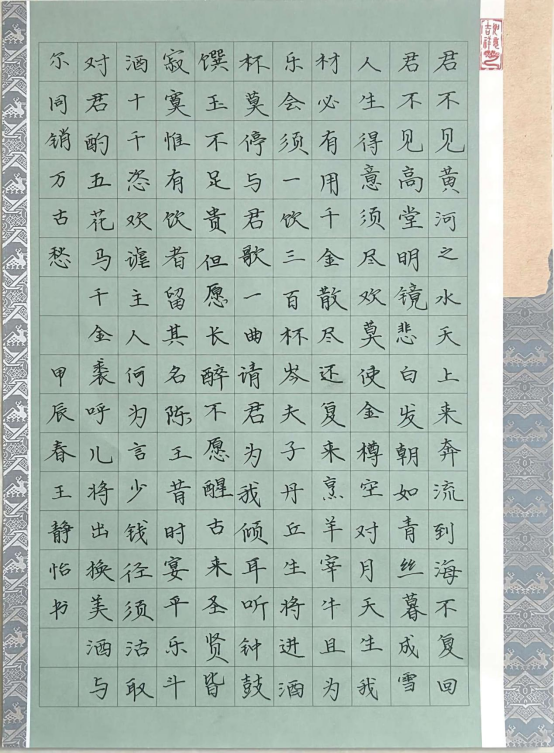 君不见黄河之水天上来奔流到海不复回
君不见高堂明镜悲白发朝如青丝暮成雪
人生得意须尽欢莫使金樽空对月天生我
材必有用千金散尽还复来烹羊宰牛且为
乐会须一饮三百杯岑夫子丹丘生将进酒
杯莫停与君歌一曲请君为我倾耳听钟鼓
馔玉不足贵但愿长醉不愿醒古来圣贤皆
寂寞惟有饮者留其名陈王昔时宴平乐斗
酒十千恣欢谑主人何为言少钱径须沽取
对君酌五花马千金裘呼儿将出换美酒与
尔同销万古愁 甲辰春王静怡书